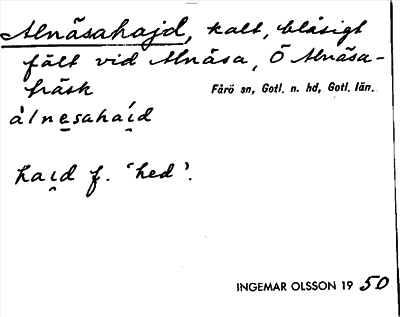 Alnäsahajd, kalt, blåsigt
fält vid Alnäsa, Ö Alnäsa-
träsk
Fårö sn, Gotl. n. hd, Gotl. län.
àlnesahai̯d
hai̯d f. 'hed'.
INGEMAR OLSSON 19 50